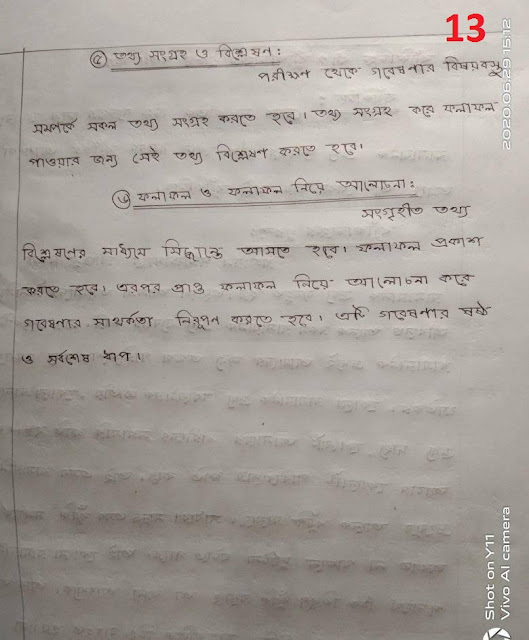 13
2020.06.29 15:12
৫ তথ্য সংগ্রহ ও বিশ্লেষন:
পরীক্ষন থেকে গবেষনার বিষয়বস্তু
সম্পর্কে সকল তথ্য সংগ্রহ করতে হবে। তথ্য সংগ্রহ করে ফলাফল
পাওয়ার জন্য সেই তথ্য বিশ্লেষণ করতে হবে।
৬ ফলাফল ও ফলাফল নিয়ে আলোচনা:
সংগৃহীত তথ্য
বিশ্লেষনের মাধ্যমে সিদ্ধান্তে আসতে হবে। ফলাফল প্রকাশ
করতে হবে। এরপর প্রাপ্ত ফলাফল নিয়ে আলোচনা করে
গবেষনার সার্থকতা নিরূপন করতে হবে। এটি গবেষনার ষষ্ঠ
ও সর্বশেষ ধাপ।
Shot on Y11
Vivo AI camera